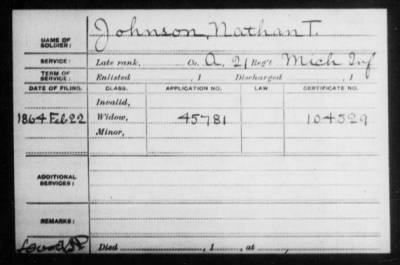 NAME OF SOLDIER: Johnson, Nathan T.
SERVICE: Late rank, Co. A, 21 Reg't Mich Inf
TERM OF SERVICE: Enlisted , 1 Discharged , 1
DATE OF FILING. CLASS. APPLICATION NO. LAW. CERTIFICATE NO.
Invalid,
1864 Feb 22 Widow, 45781 104529
Minor,
ADDITIONAL SERVICES:
REMARKS:
Died , 1 , at ,